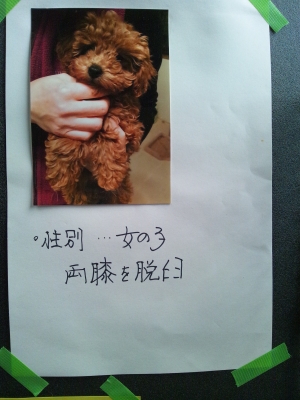 •性別…女の子
両膝を脱臼